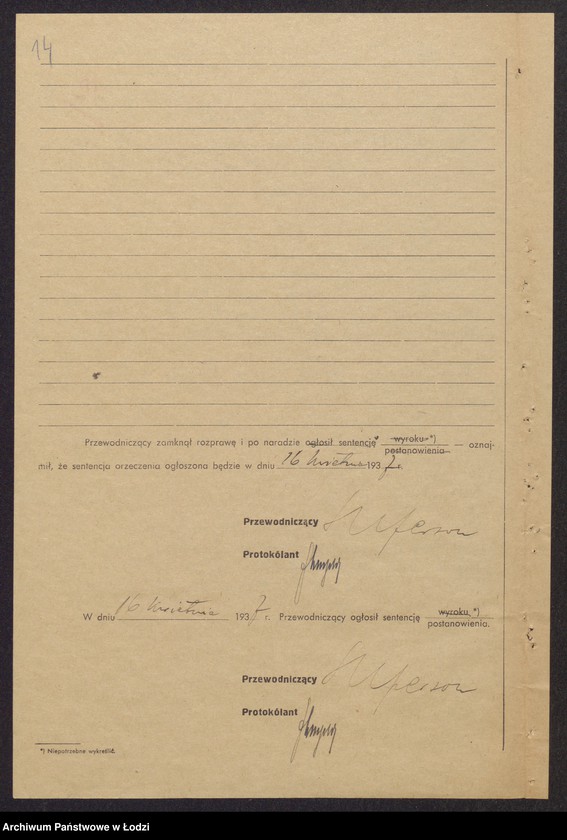 14
Przewodniczący zamknął rozprawę i po naradzie ogłosił sentencję wyroku *) postanowienia — oznaj-
mił, że sentencja orzeczenia ogłoszona będzie w dniu 16 kwietnia 1937 r.
Przewodniczący
Protokólant
W dniu 16 kwietnia 1937 r. Przewodniczący ogłosił sentencję wyroku, *) postanowienia.
Przewodniczący
Protokólant
*) Niepotrzebne wykreślić.
Archiwum Państwowe w Łodzi